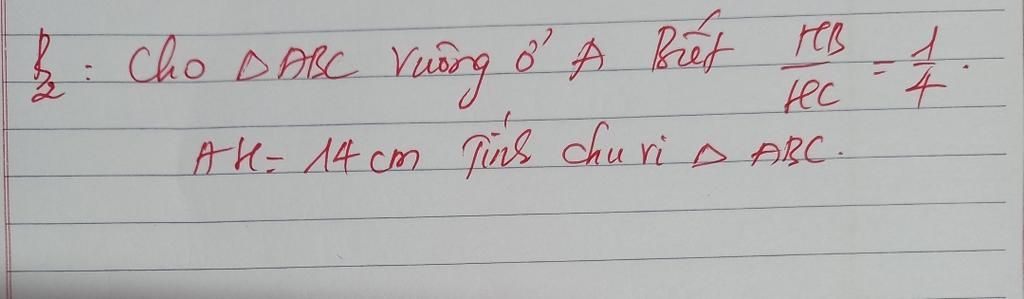 B2: Cho △ABC vuông ở A Biết HB/HC = 1/4.
AH = 14 cm Tính chu vi △ ABC.